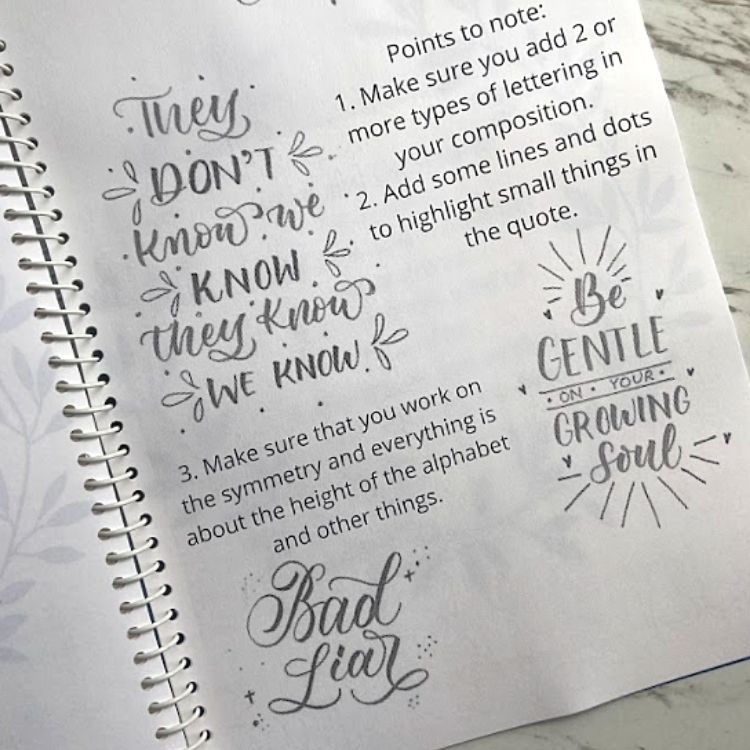 They
DON'T
know we
KNOW
they know
WE KNOW.
Points to note:
1. Make sure you add 2 or
more types of lettering in
your composition.
2. Add some lines and dots
to highlight small things in
the quote.
Be
GENTLE
• ON • YOUR •
GROWING
Soul
3. Make sure that you work on
the symmetry and everything is
about the height of the alphabet
and other things.
Bad
Liar